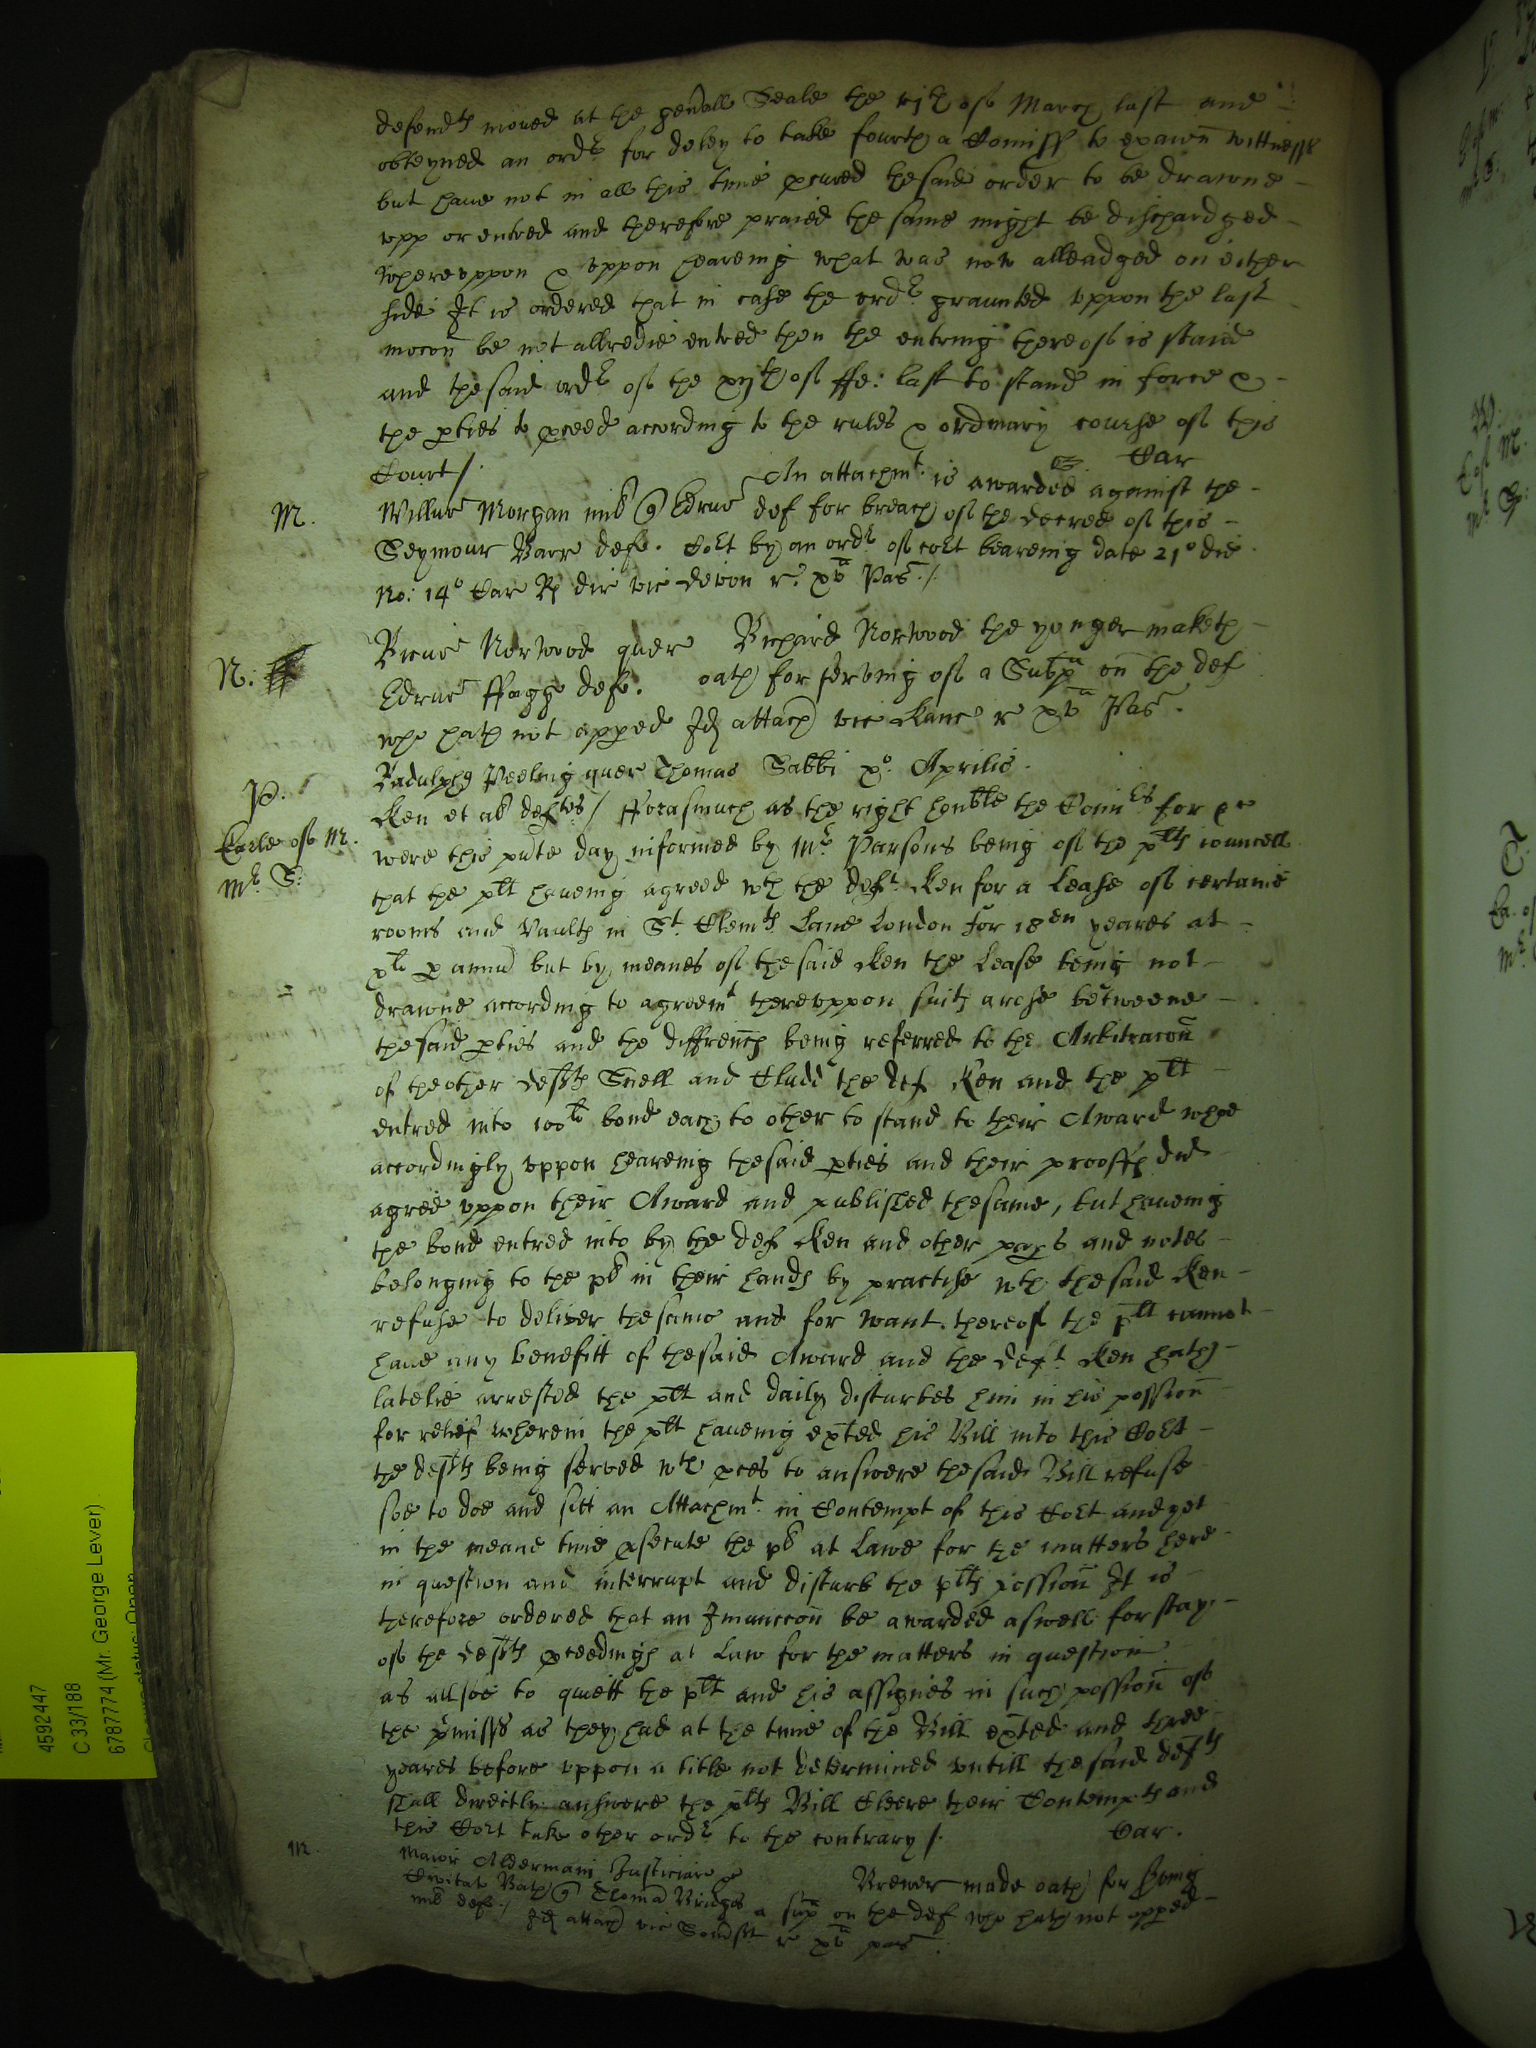 defendts moved at the gen'all Seale the vjth of March last and
obteyned an ordr for deley to take fourth a Comiss to exami'n wittnesses
but have not in all this time p'cured thesaid order to be drawne
vpp or entred and therefore praied the same might be dischardged
Wherevppon & vppon heareing what was now alleadged on either
side It is ordered that in case the ordr graunted vppon the last
moco'n be not allredie entred then the entring thereof is staied
and thesaid ordr of the xijth of ffe: last to stand in force &
the p'ties to p'ceed according to the rules & ordinary course of this
Court/. Car
M. Willm'e Morgan mil' Edrus An attachmt. is awarded against the
Seymour Barr def. def for breach of the decree of this
Cort by an ordr of cort beareing date 21o die
No: 14o Car R dir vic devon r. xva Pas./.
N: Norwood quer Richard Norwood the yonger maketh
Edrus ffagge def. oath for serving of a Subpa on the def
who hath not app'ed Id attach vic Kanc r xva Pas.
P. Radulphus Peeling quer Thomas Sabbi po. Aprilis.
Earle of M. Ken et al deftes/ fforasmuch as the right honble the Comrs for &c
Mr. S: were this p'nte day informed by Mr Parsons being of the pltts councell
that the pltt haveing agreed wth the deft. Ken for a Lease of certaine
rooms and Vaults in St. Clemts Lane London for 18en yeares at
xli p annu' but by meanes of thesaid Ken the Lease being not
drawne according to agreemt therevppon suits arose betweene
thesaid p'ties and the diffrencs being referred to the Arbitraco'n
of theother defts Snell and Cludd the def Ken and the pltt
entred into 100li bond each to other to stand to their Award whoe
accordingly vppon heareing thesaid p'ties and their prooffs did
agree vppon their Award and published thesame, but haveing
the bond entred into by the def Ken and other pap's and notes
belonging to the pl' in their hands by practise wth thesaid Ken
refuse to deliver thesame and for want thereof the pltt cannot
have any benefitt of thesaid Award and the deft. Ken hath
latelie arrested the pltt and daily disturbes him in his possio'n
for relief wherein the pltt haveing ex'ted his Bill into this Cort
the defts being served wth p'ces to answere thesaid Bill refuse
soe to doe and sitt an Attachmt. in Contempt of this Cort and yet
in the meane time p'secute the pl' at Lawe for the matters here
in question and interrupt and disturb the pltts possio'n It is
therefore ordered that an Iniuncco'n be awarded aswell for stay
of the defts p'ceedings at Law for the matters in question
as allsoe to quiett the pltt and his assignes in such possio'n of
the p'misss as they had at the time of the Bill ex'ted and three
yeares before vppon a title not determined vntill thesaid defts
shall directly answere the pltts Bill Cleere their Contempts and
this Cort take other ordr to the contrary/. Car.
M. Maior Aldermani Justiciar &c Brewer made oath for s'ving
Civitat Bath Thoma' Bridges a sup'a on the def who hath not app'ed
mil' def./ Id attach vic Som'sett r xva pas.
4592447
C 33/188
6787774 (Mr. George Lever)